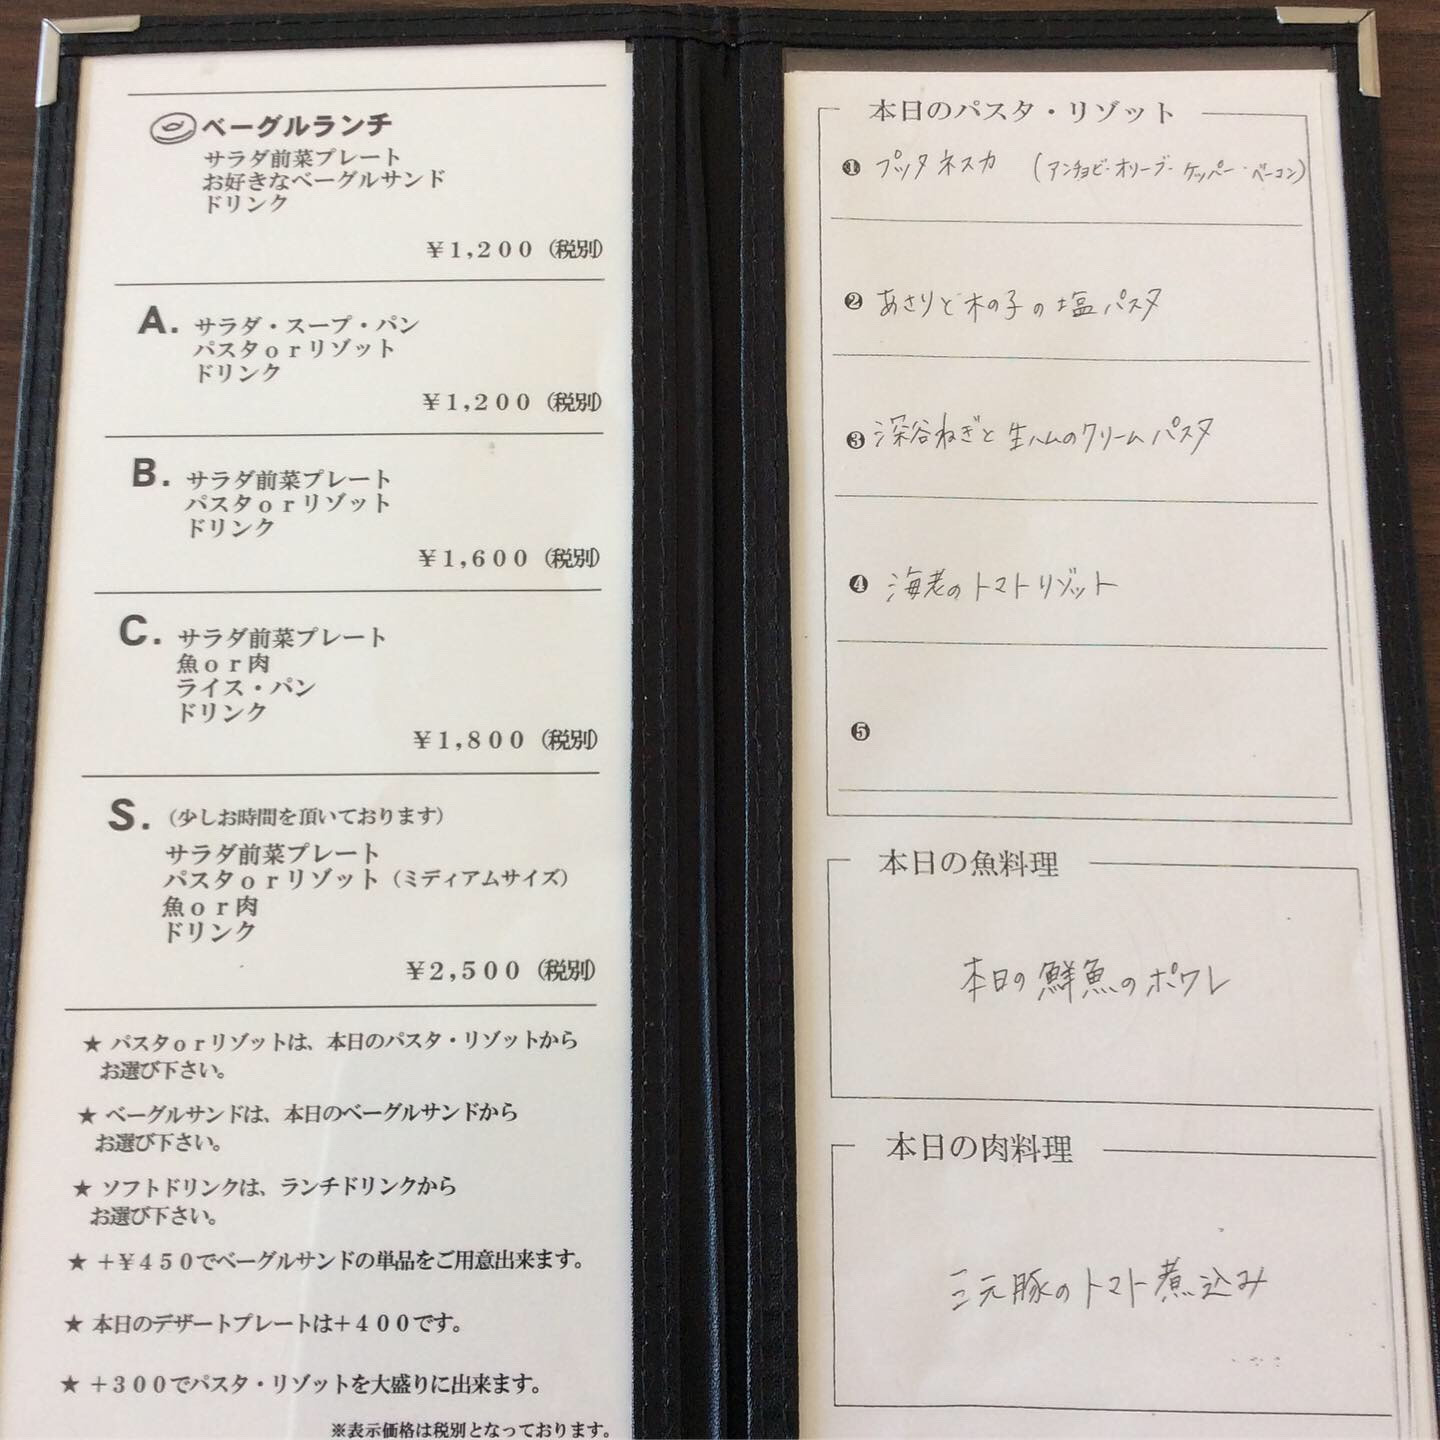 ベーグルランチ
サラダ前菜プレート
お好きなベーグルサンド
ドリンク
￥１,２００（税別）
A.
サラダ・スープ・パン
パスタｏｒリゾット
ドリンク
￥１,２００（税別）
B.
サラダ前菜プレート
パスタｏｒリゾット
ドリンク
￥１,６００（税別）
C.
サラダ前菜プレート
魚ｏｒ肉
ライス・パン
ドリンク
￥１,８００（税別）
S.（少しお時間を頂いております）
サラダ前菜プレート
パスタｏｒリゾット（ミディアムサイズ）
魚ｏｒ肉
ドリンク
￥２,５００（税別）
★ パスタｏｒリゾットは、本日のパスタ・リゾットから
お選び下さい。
★ ベーグルサンドは、本日のベーグルサンドから
お選び下さい。
★ ソフトドリンクは、ランチドリンクから
お選び下さい。
★ ＋￥４５０でベーグルサンドの単品をご用意出来ます。
★ 本日のデザートプレートは＋４００です。
★ ＋３００でパスタ・リゾットを大盛りに出来ます。
※表示価格は税別となっております。
本日のパスタ・リゾット
❶ プッタネスカ （アンチョビ・オリーブ・ケッパー・ベーコン）
❷ あさりと木の子の塩パスタ
❸ 深谷ねぎと生ハムのクリームパスタ
❹ 海老のトマトリゾット
❺
本日の魚料理
本日の鮮魚のポワレ
本日の肉料理
三元豚のトマト煮込み